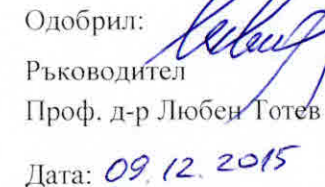 Одобрил:
Ръководител
Проф. д-р Любен Тотев
Дата: 09.12.2015